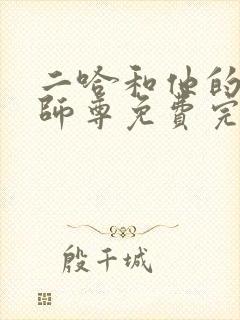 二哈和他的
師尊免費完
殷千城